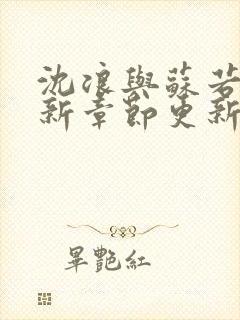 沈浪與蘇若
新章節更新
畢艷紅